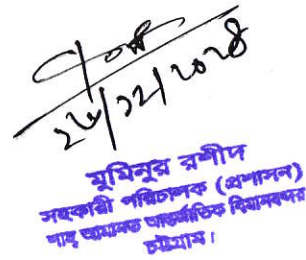 ২৬/১২/২০২৪
মুমিনুর রশীদ
সহকারী পরিচালক (প্রশাসন)
শাহ্ আমানত আন্তর্জাতিক বিমানবন্দর
চট্টগ্রাম।